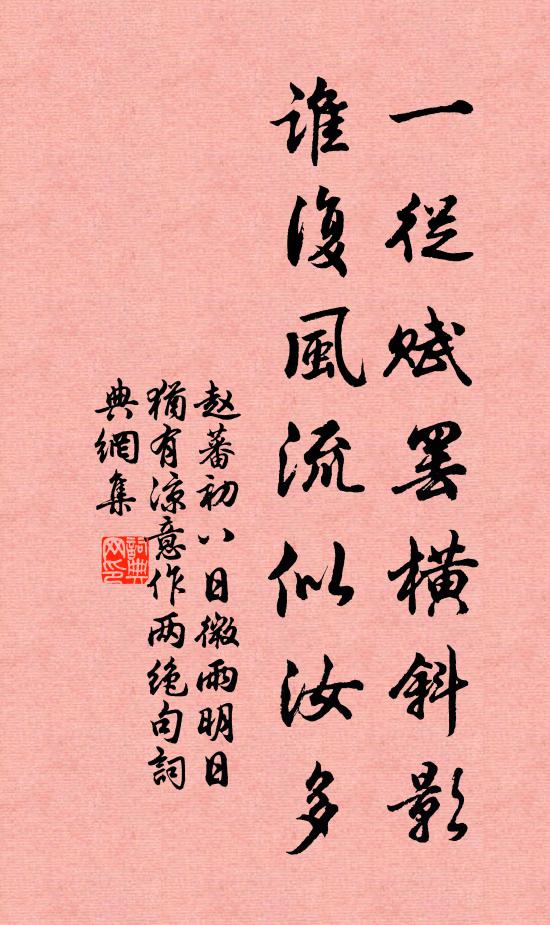 一從賦罷橫斜影
誰復風流似汝多
赵蕃初八日微雨明日
猶有涼意作两绝句詞
典網集
詞典
网印